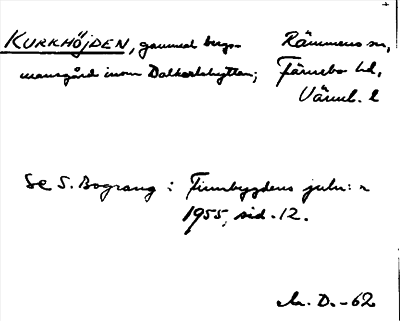 KURKHÖJDEN, gammal bergs- Rämmens sn,
mansgård inom Dalkarlshyttan; Färnebo hd,
Värml. l
Se S. Bograng: Finnbygdens julnr
1955, sid. 12.
D. -62